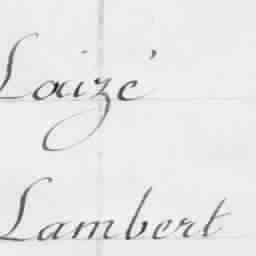 Laizé
Lambert